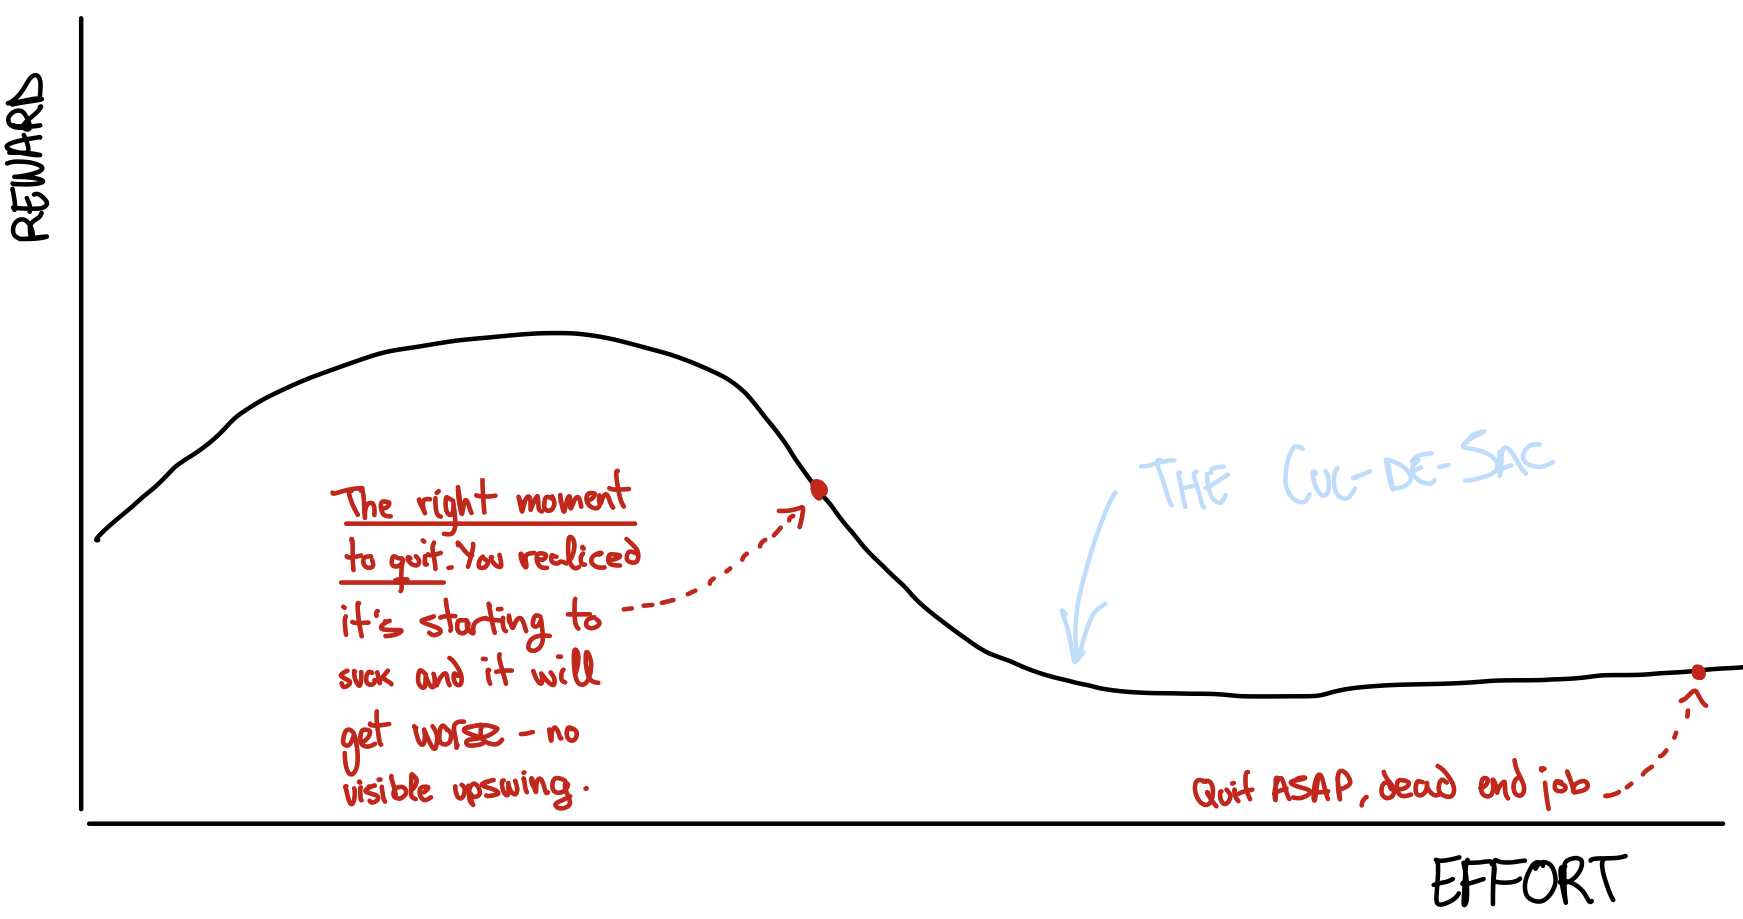 REWARD
THE CUL-DE-SAC
The right moment
to quit. You realiced
it's starting to
suck and it will
get worse - no
visible upswing.
Quit ASAP, dead end job
EFFORT